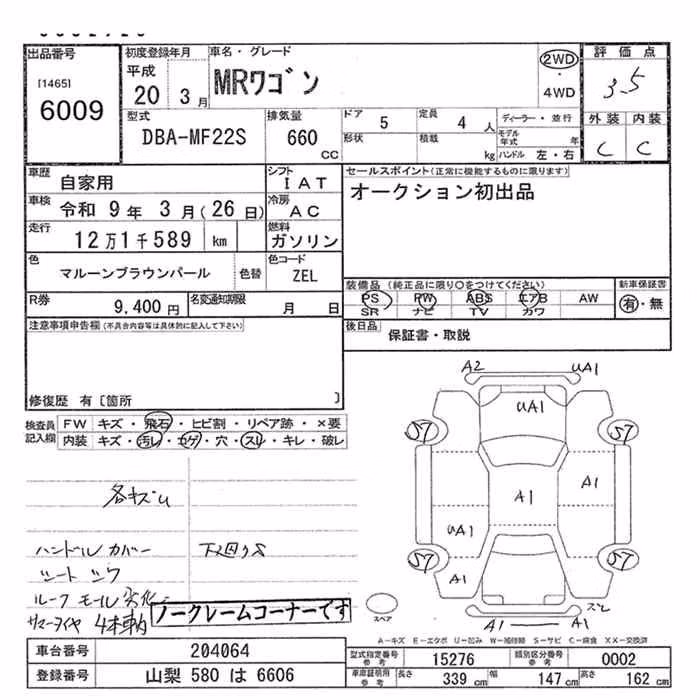 出品番号
[1465]
6009
初度登録年月
平成
20 3月
車名・グレード
MRワゴン
2WD
・
4WD
評価点
3.5
外装 内装
C C
型式
DBA-MF22S
排気量
660
CC
ドア 5
定員 4人
形状
積載 kg
ディーラー・並行
モデル年式 年
ハンドル 左・右
車歴
自家用
シフト
IAT
車検 令和 9年 3月(26日)
冷房
AC
走行
12万1千589 km
燃料
ガソリン
色
マルーンブラウンパール
色替
色コード
ZEL
R券
9,400円
名変通知期限
月 日
セールスポイント(正常に機能するものに限ります)
オークション初出品
装備品(純正品に限り○をつけてください)
PS PW ABS エアB AW
SR ナビ TV カワ
新車保証書
有・無
後日品
保証書・取説
注意事項申告欄(不具合内容等は具体的に記入して下さい)
修復歴 有〔箇所 〕
検査員
記入欄
FW キズ・飛石・ヒビ割・リペア跡・×要
内装 キズ・汚レ・コゲ・穴・スレ・キレ・破レ
各キズU
ハンドルカバー
下廻りS
シートシワ
ルーフモール劣化
サマータイヤ 4本車内
ノークレームコーナーです
A2 UA1
UA1
S7 S7
A1
A1
UA1
S7 S7
A1
スレ
A1 A1
スペア
A-キズ E-エクボ U-凹み W-補修跡 S-サビ C-腐食 XX-交換済
車台番号
204064
登録番号
山梨 580 は 6606
型式指定番号
参考
15276
類別区分番号
参考
0002
車庫証明用
参考
長さ 339 cm
幅 147 cm
高さ 162 cm